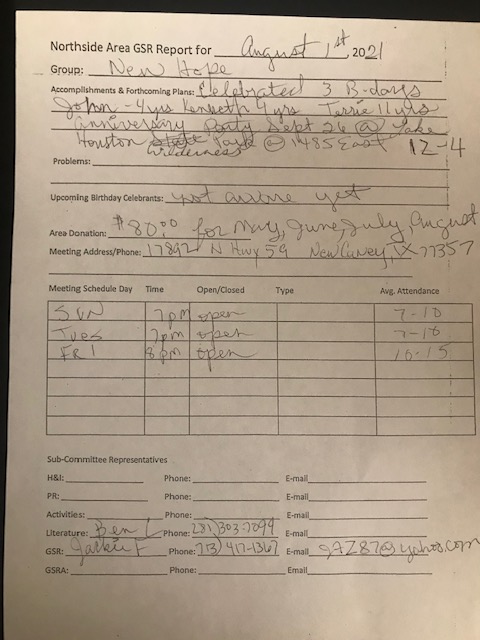 Northside Area GSR Report for August 1st, 2021
Group: New Hope
Accomplishments & Forthcoming Plans: Celebrated 3 B-days
John - 4yrs Kenneth 4 yrs Terrie 11 yrs
anniversary Party Sept 26 @ Lake
Houston Wilderness Park @ 1485 East 12-4
Problems:
Upcoming Birthday Celebrants: not anyone yet
Area Donation: $80.00 for May, June, July, August
Meeting Address/Phone: 17892 N Hwy 59 New Caney, TX 77357
Meeting Schedule Day Time Open/Closed Type Avg. Attendance
SUN 7pm open 7-10
Tues 7pm open 7-10
FRI 8pm open 10-15
Sub-Committee Representatives
H&I: Phone: E-mail
PR: Phone: E-mail
Activities: Phone: E-mail
Literature: Ben L Phone: (281) 303-7099 E-mail
GSR: Jackie F Phone: (713) 417-1367 E-mail @yahoo.com
GSRA: Phone: Email